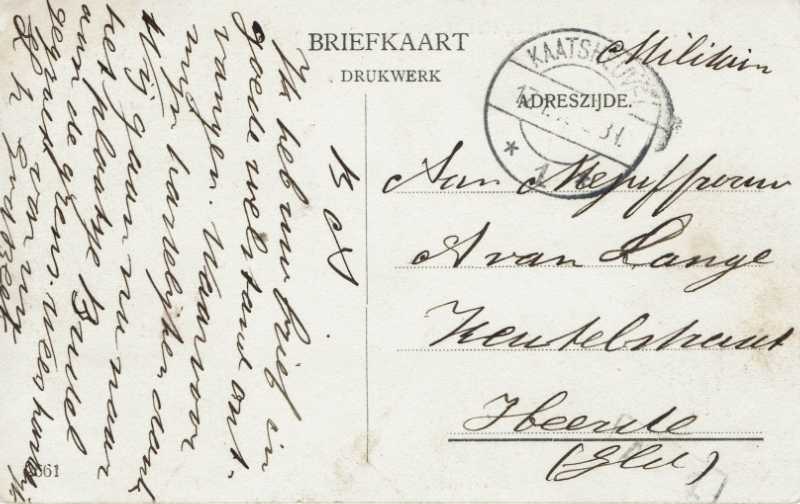 BRIEFKAART
DRUKWERK
ADRESZIJDE.
KAATSHEUVEL
Militair
Aan Mejuffrouw
A van Lange
Keutelstraat
Heerde
(Gld)
Ik heb uw brief in
goede welstand ont-
vangen. Waarvoor
mijn hartelijken dank
Wij gaan nu naar
het plaatsje Budel
aan de grens. Wees hartelijk
gegroet van mij
561